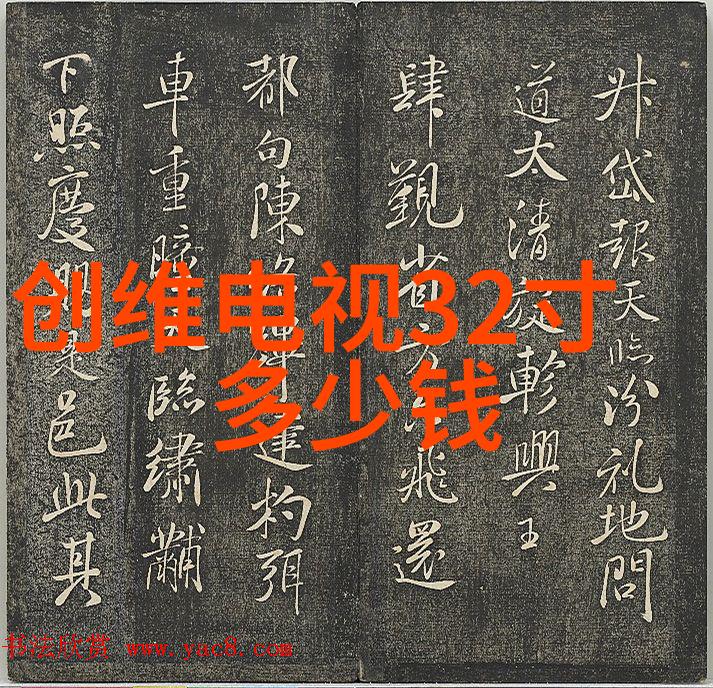 创维电视32寸
多少钱
升岱報天臨汾礼地問
道太清旋軫興王
肆覲省飛還
都句陳達杓
車重臨繡黼
下照慶邑此其
书法欣赏 www.yac8.com